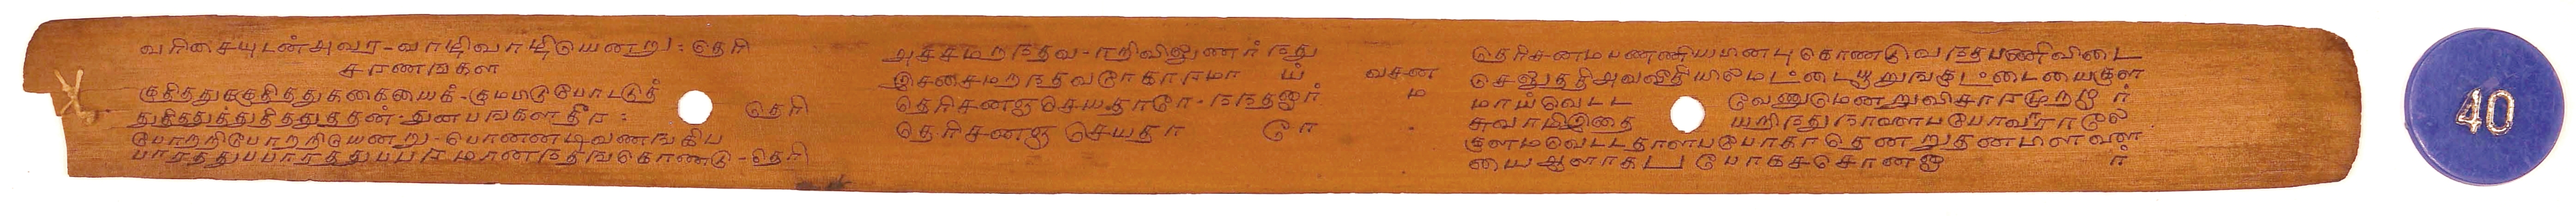 வரிசையுடன்அவர-வாழிவாழியெனறு: தெரி
சரணஙகள
குதித்துக்குதித்துககையைக்-குமபிடுபோட்டுத்
துதித்துத்துதித்துததன்-துனபஙகளதீர: தெரி
போறறிபோறறியெனறு-பொனனடிவணஙகிப
பாரத்துபபாரத்துபபரமானநதஙகொணடு-தெரி
அச்சமறநதவ-ரறிவிலுணர்நது
இசசைமறநதவரோகாரமாய்
தெரிசனஞசெயதாரே-நநதனார்
தெரிசனஞ செயதாரே
வசனம
தெரிசனமபணணியபினபுகொணடுவநதபணிவிடை
செலுததிஅவவிதியிலேமடடையூறுஙகுடடையைகுள
மாய்வெடட வேணுமெனறுவிசாரமுறறார்
சுவாமிஇதை யறிநதுநாணாபபோவாராலே
குளமவெடடதாளபபோகாதெனறுதணமளவளர்
யைஆளாகட போகசசொனனார்
40